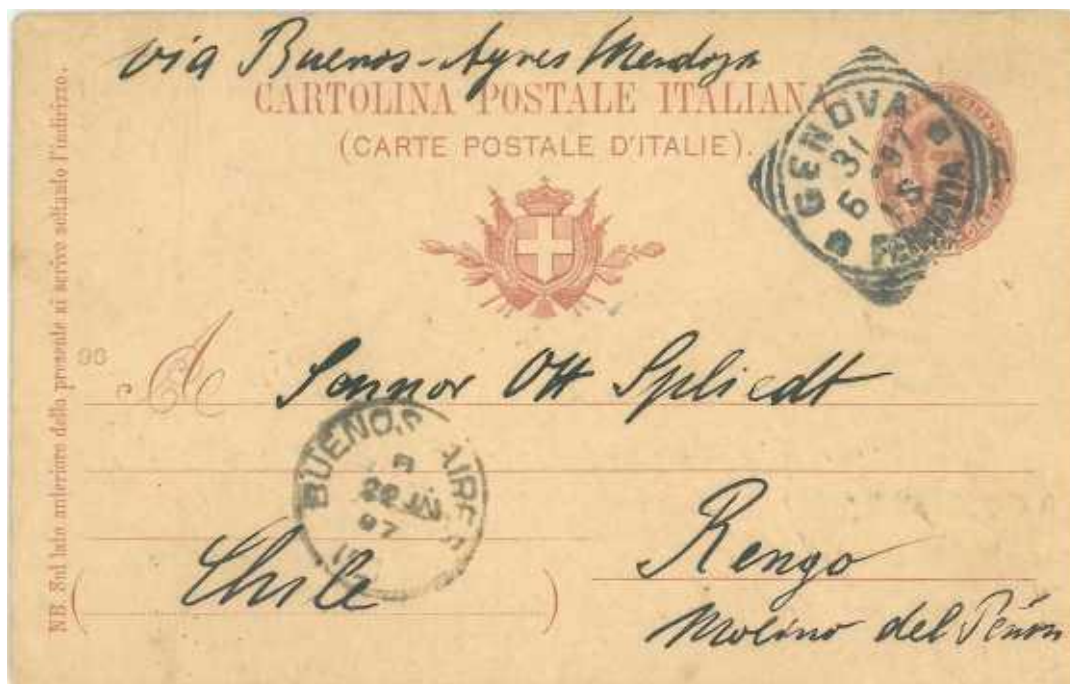 via Buenos-Ayres Mendoza
CARTOLINA POSTALE ITALIANA
(CARTE POSTALE D'ITALIE).
GENOVA
31
6 97
FERROVIA
NB. Sul lato anteriore della presente si scrive soltanto l'indirizzo.
96
A Sennor Ott Spliedt
BUENOS AIRES
22 JN
97
Chile
Rengo
Molino del Peñon